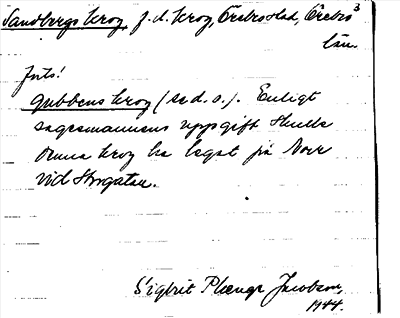 Sandbergs krog, f.d. krog, Örebro stad, Örebro 3
län.
forts!
gubbens krog (se d. o.). Enligt
sagesmannens uppgift skulle
denna krog ha legat på Norr
vid Storgatan.
Sigbrit Plænge Jacobson,
1944.